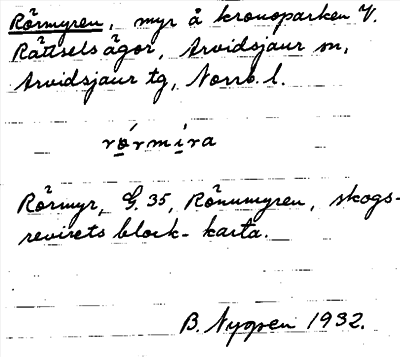 Rörmyren, myr å kronoparken V.
Rättselsågor, Arvidsjaur sn,
Arvidsjaur tg, Norrb. l.
rǫ́rmi̱ra
Rörmyr, G. 35, Rönnmyren, skogs-
revirets block-karta.
B. Nygren 1932.